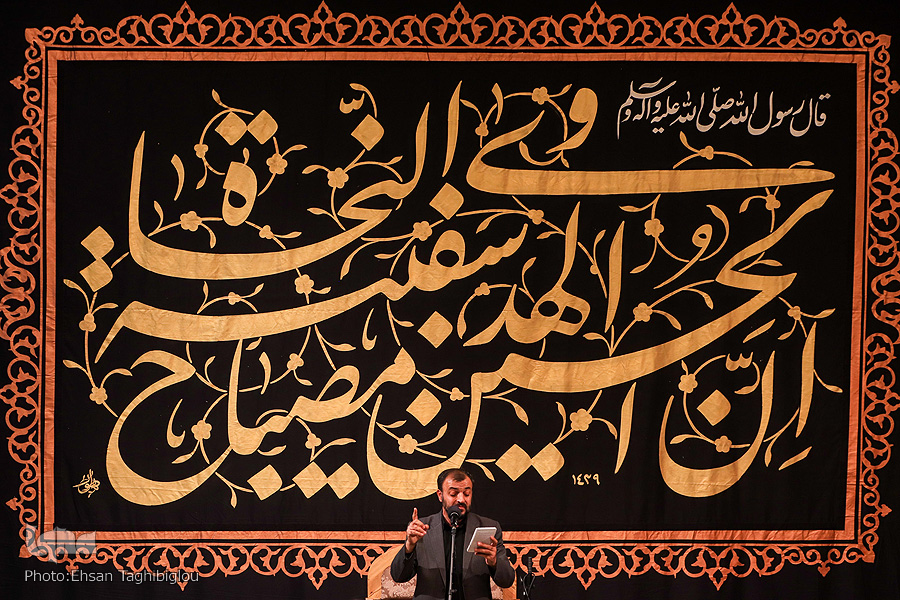 قال رسول الله صلّی الله علیه وآله وسلم
إنّ الحسین مصباح
الهدی و سفینة
النّجاة
١٤٣٩
Photo:Ehsan Taghibiglou